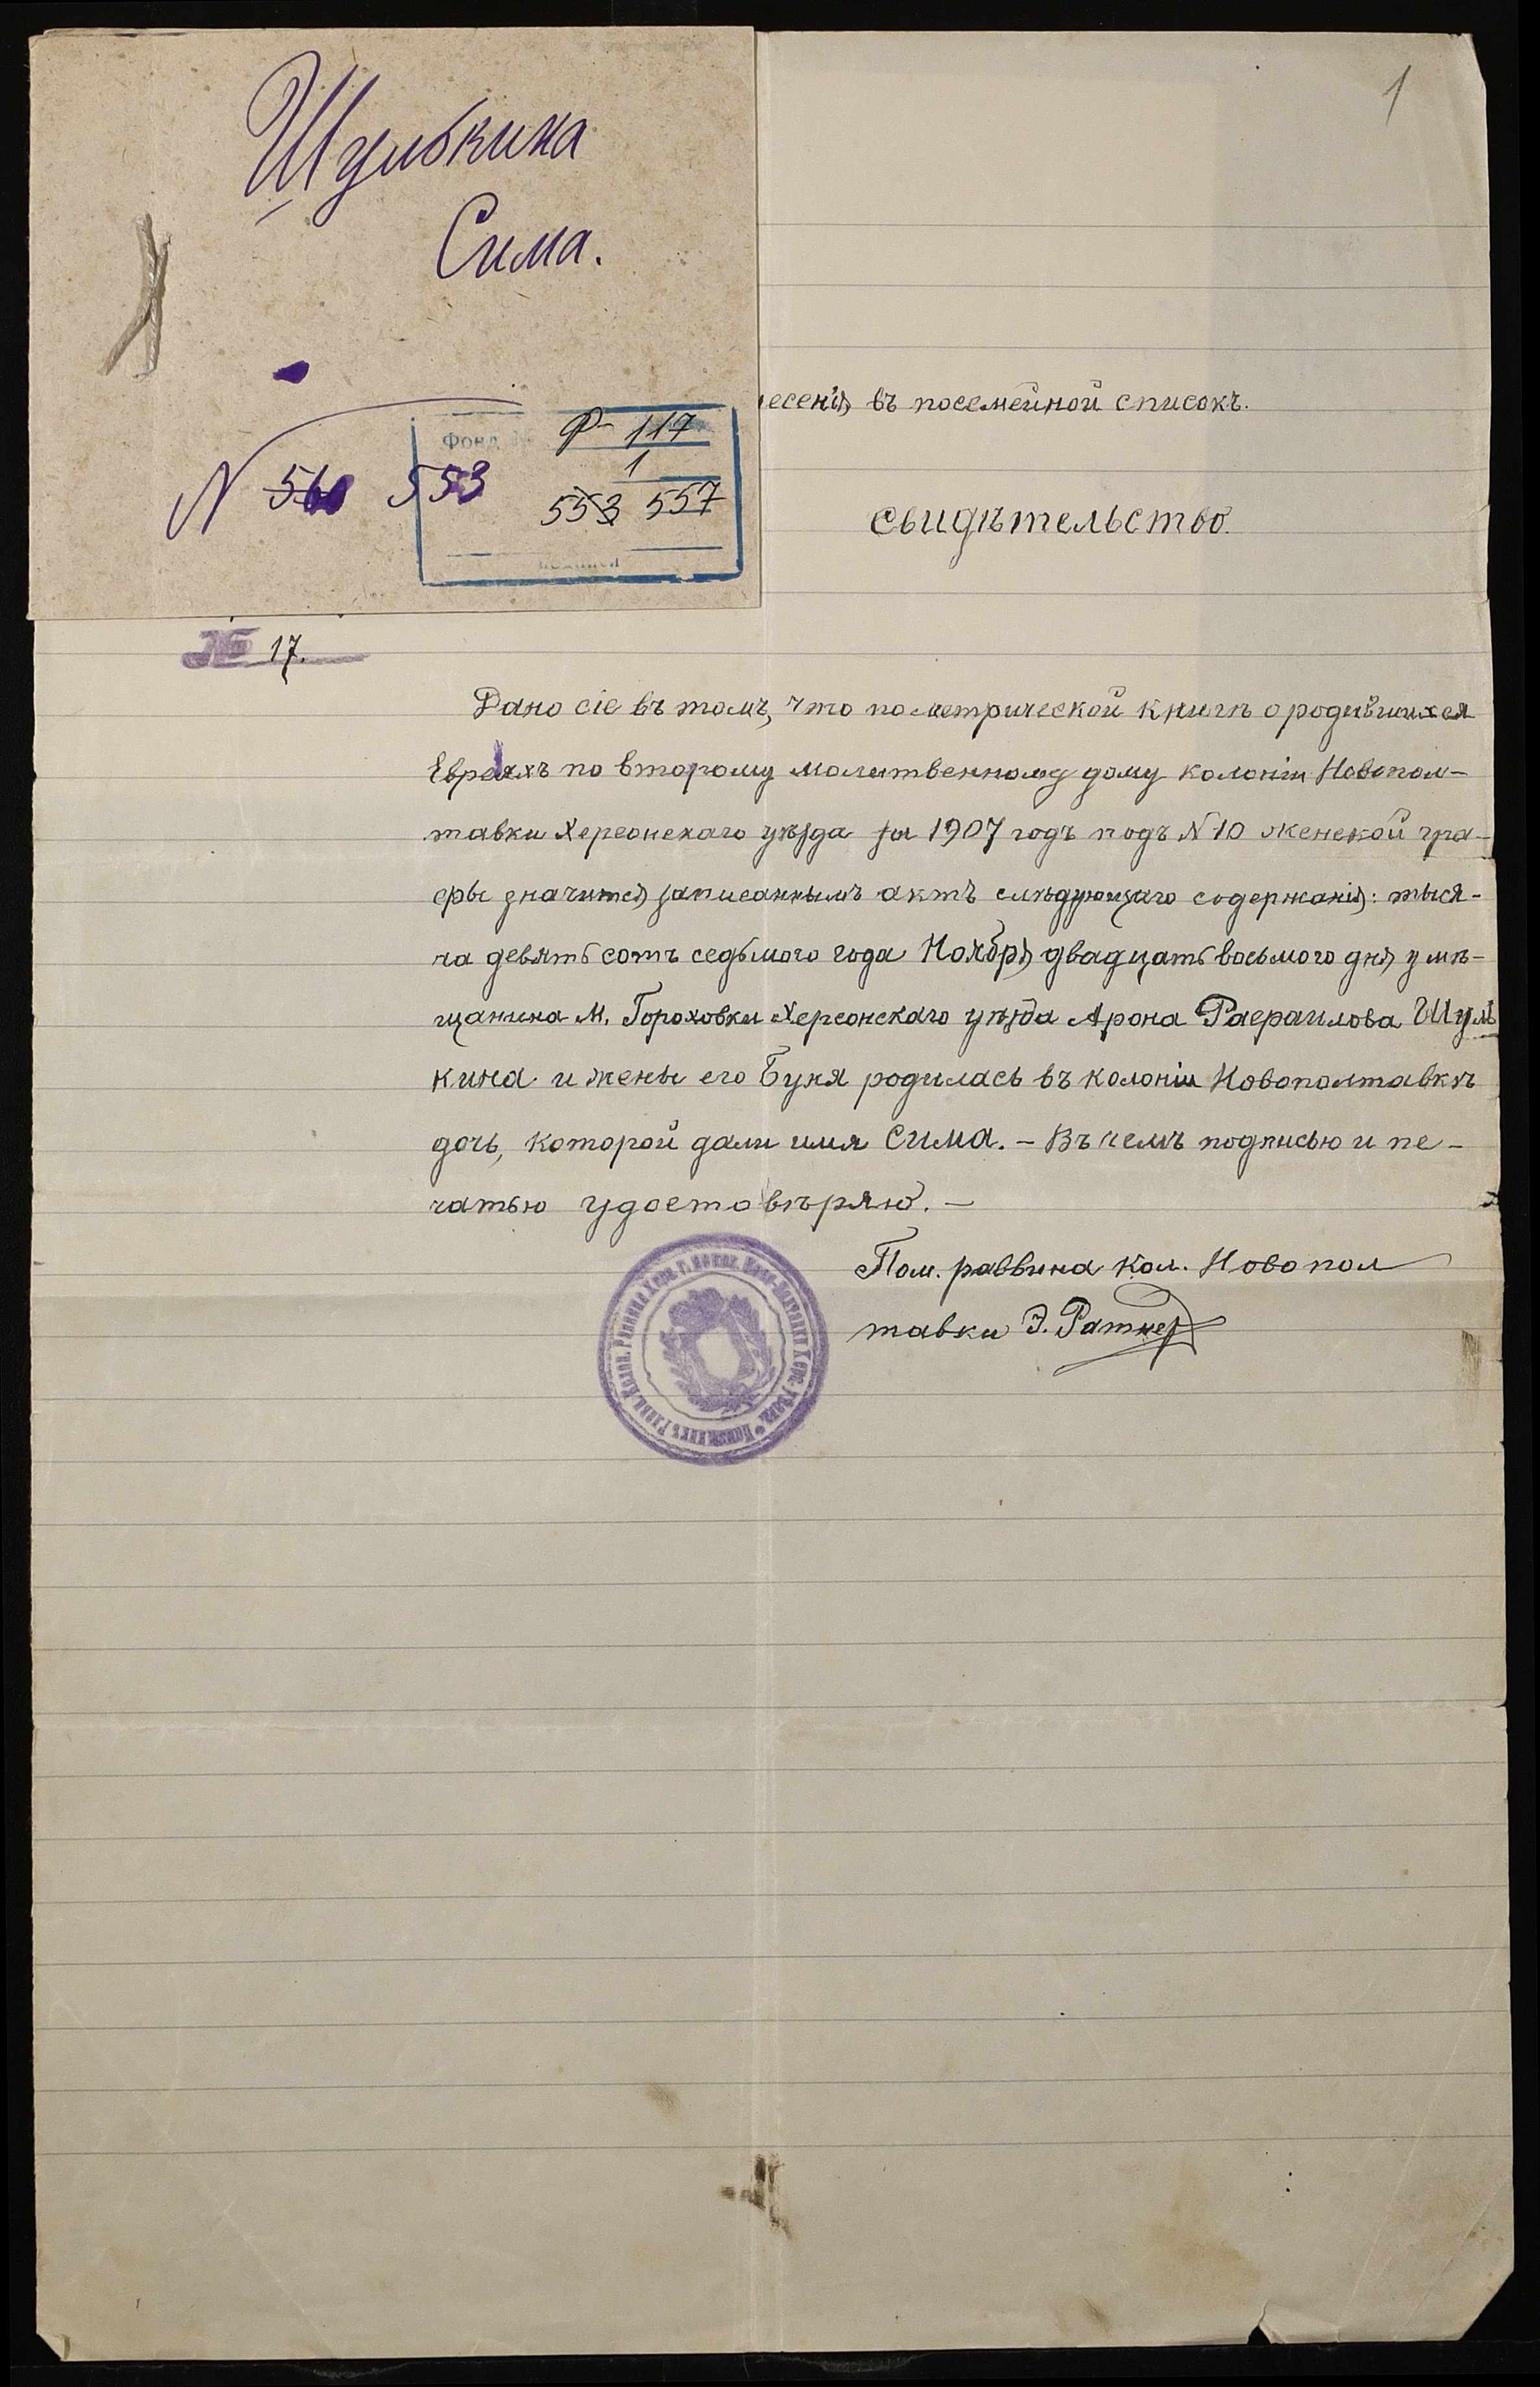 1
Шулькина
Сима.
Фонд № Р-117
1
N 560 553
553 557
есенія въ посемейной списокъ.
Свидѣтельство.
№ 17.
Дано сіе въ томъ, что по метрической книгѣ о родившихся
Евреяхъ по второму молитвенному дому колоніи Новопол-
тавки Херсонскаго уѣзда за 1907 годъ подъ N 10 женской гра-
фы значится записаннымъ актъ слѣдующаго содержанія: тыся-
ча девятьсотъ седьмого года Ноября двадцать восьмого дня у мѣ-
щанина М. Гороховки Херсонскаго уѣзда Арона Рафаилова Шуль
кина и жены его Буня родилась въ колоніи Новополтавкѣ
дочь, которой дали имя Сима. – Въ чемъ подписью и пе-
чатью удостовѣряю. –
Пом. раввина Кол. Новопол
тавки Э. Ратнер